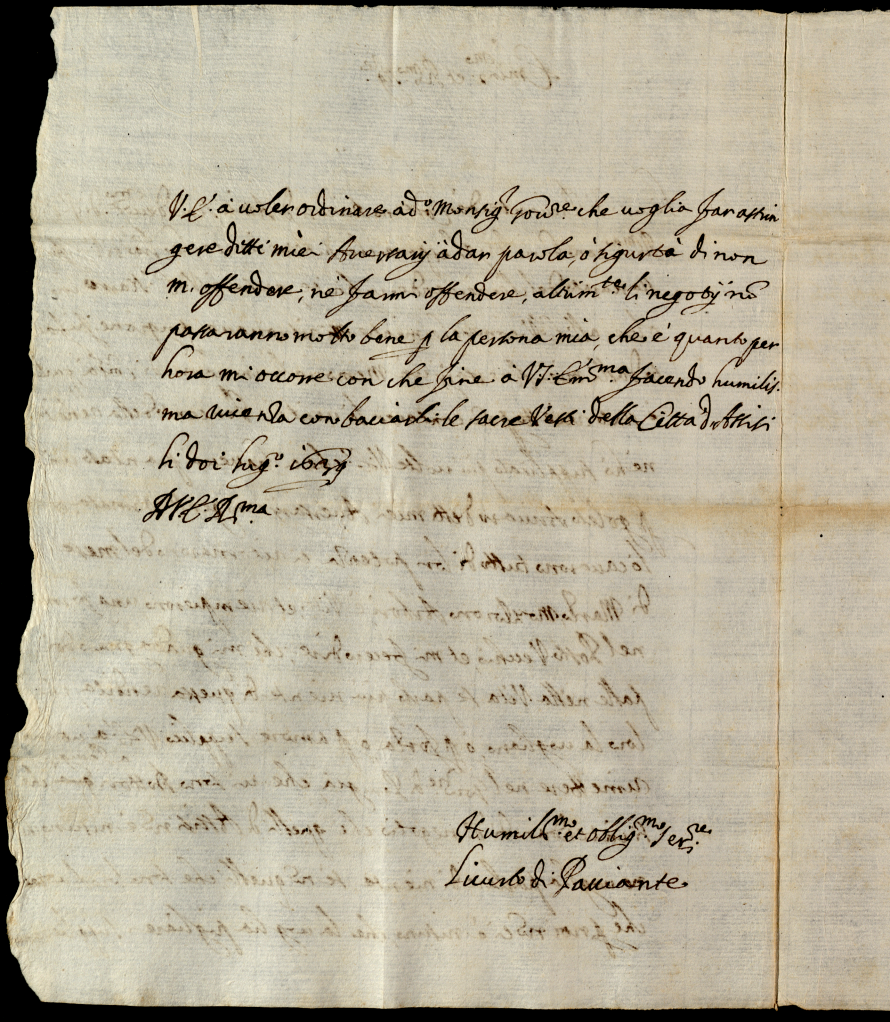 V. E. à voler ordinare à d.º Monsig.r Gov.re che voglia far astrin
gere ditti miei Aversarij à dar parola, ò sigurtà di non
mi offendere, nè farmi offendere, altrim.te li negotij nõ
passaranno molto bene p la persona mia, che è quanto per
hora mi occorre con che fine à V. E. Em.ma facendo humilis.
ma riverenza con baciarli le sacre Vesti della Città d'Assisi
li doi lug.º
D V. E. R.ma
Humiliss.mo et oblig.mo Ser.re
di Paciante